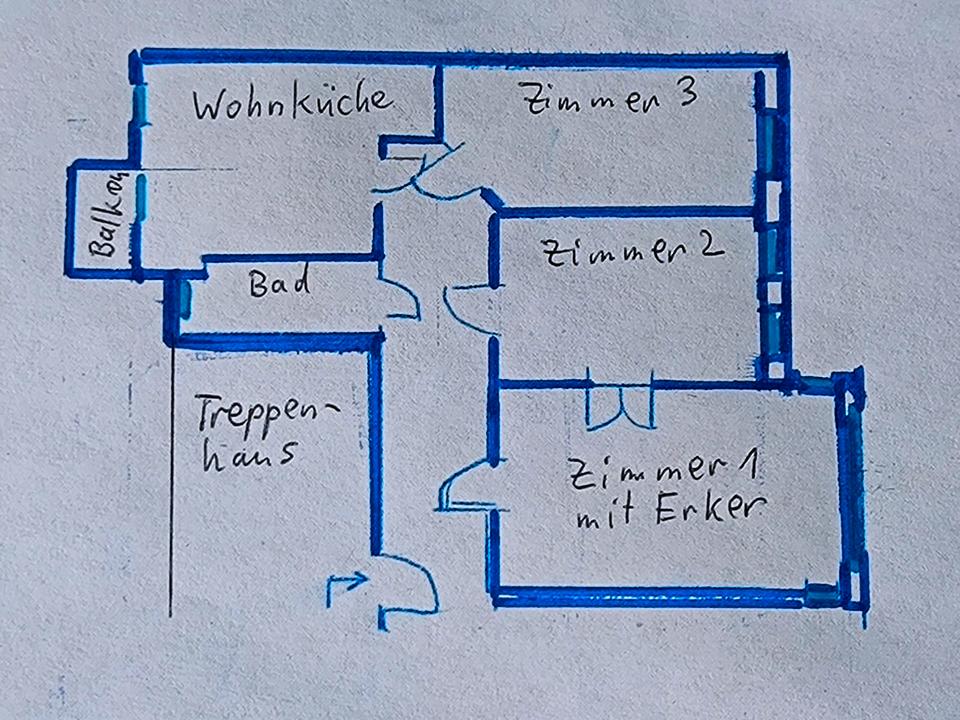 Wohnküche
Zimmer 3
Balkon
Bad
Zimmer 2
Treppen-
haus
Zimmer 1
mit Erker